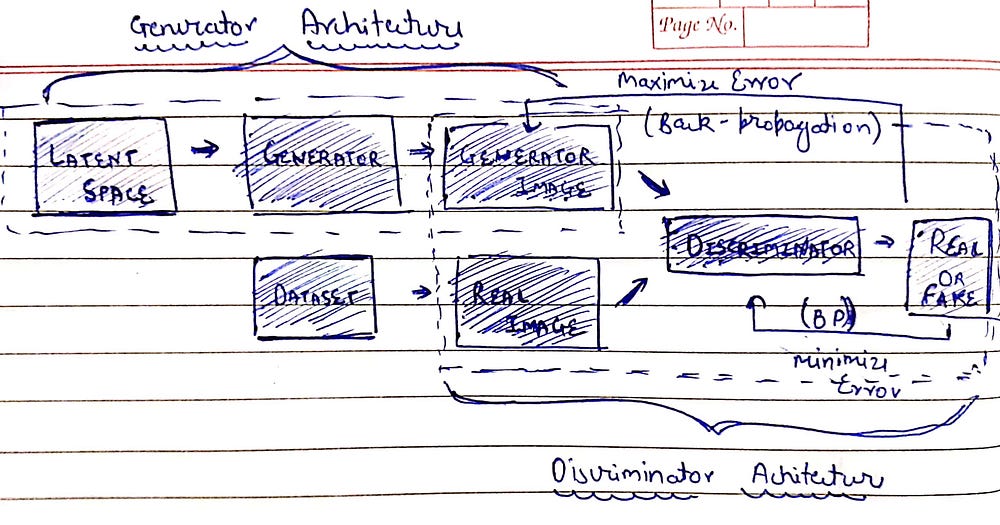 Generator Architecture
Page No.
Maximize Error
(Back-propagation)
LATENT
SPACE
GENERATOR
GENERATOR
IMAGE
DISCRIMINATOR
REAL
OR
FAKE
DATASET
REAL
IMAGE
(BP)
minimize
Error
Discriminator Achitecture